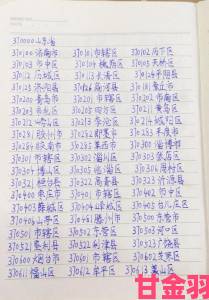 370000山东省
370100济南市 370101市辖区 370102历下区
370103市中区 370104槐荫区 370105天桥区
370112历城区 370113长清区 370124平阴县
370125济阳县 370126商河县
370200青岛市 370201市辖区 370202市南区
370203市北区
370212崂山区 370213李沧区 370214城阳区
370281胶州市 370282即墨市 370283平度市
370284胶南市 370285莱西市 370300淄博市
370301市辖区 370302淄川区 370303张店区
370304博山区 370305临淄区 370306周村区
370321桓台县 370322高青县 370323沂源县
370400枣庄市 370401市辖区 370402市中区
370403薛城区 370404峄城区 370405台儿庄区
370406山亭区 370481滕州市 370500东营市
370501市辖区 370502东营区 370503河口区
370521垦利县 370522利津县 370523广饶县
370600烟台市 370601市辖区 370602芝罘区
370611福山区 370612牟平区 370613莱山区
甘金羽